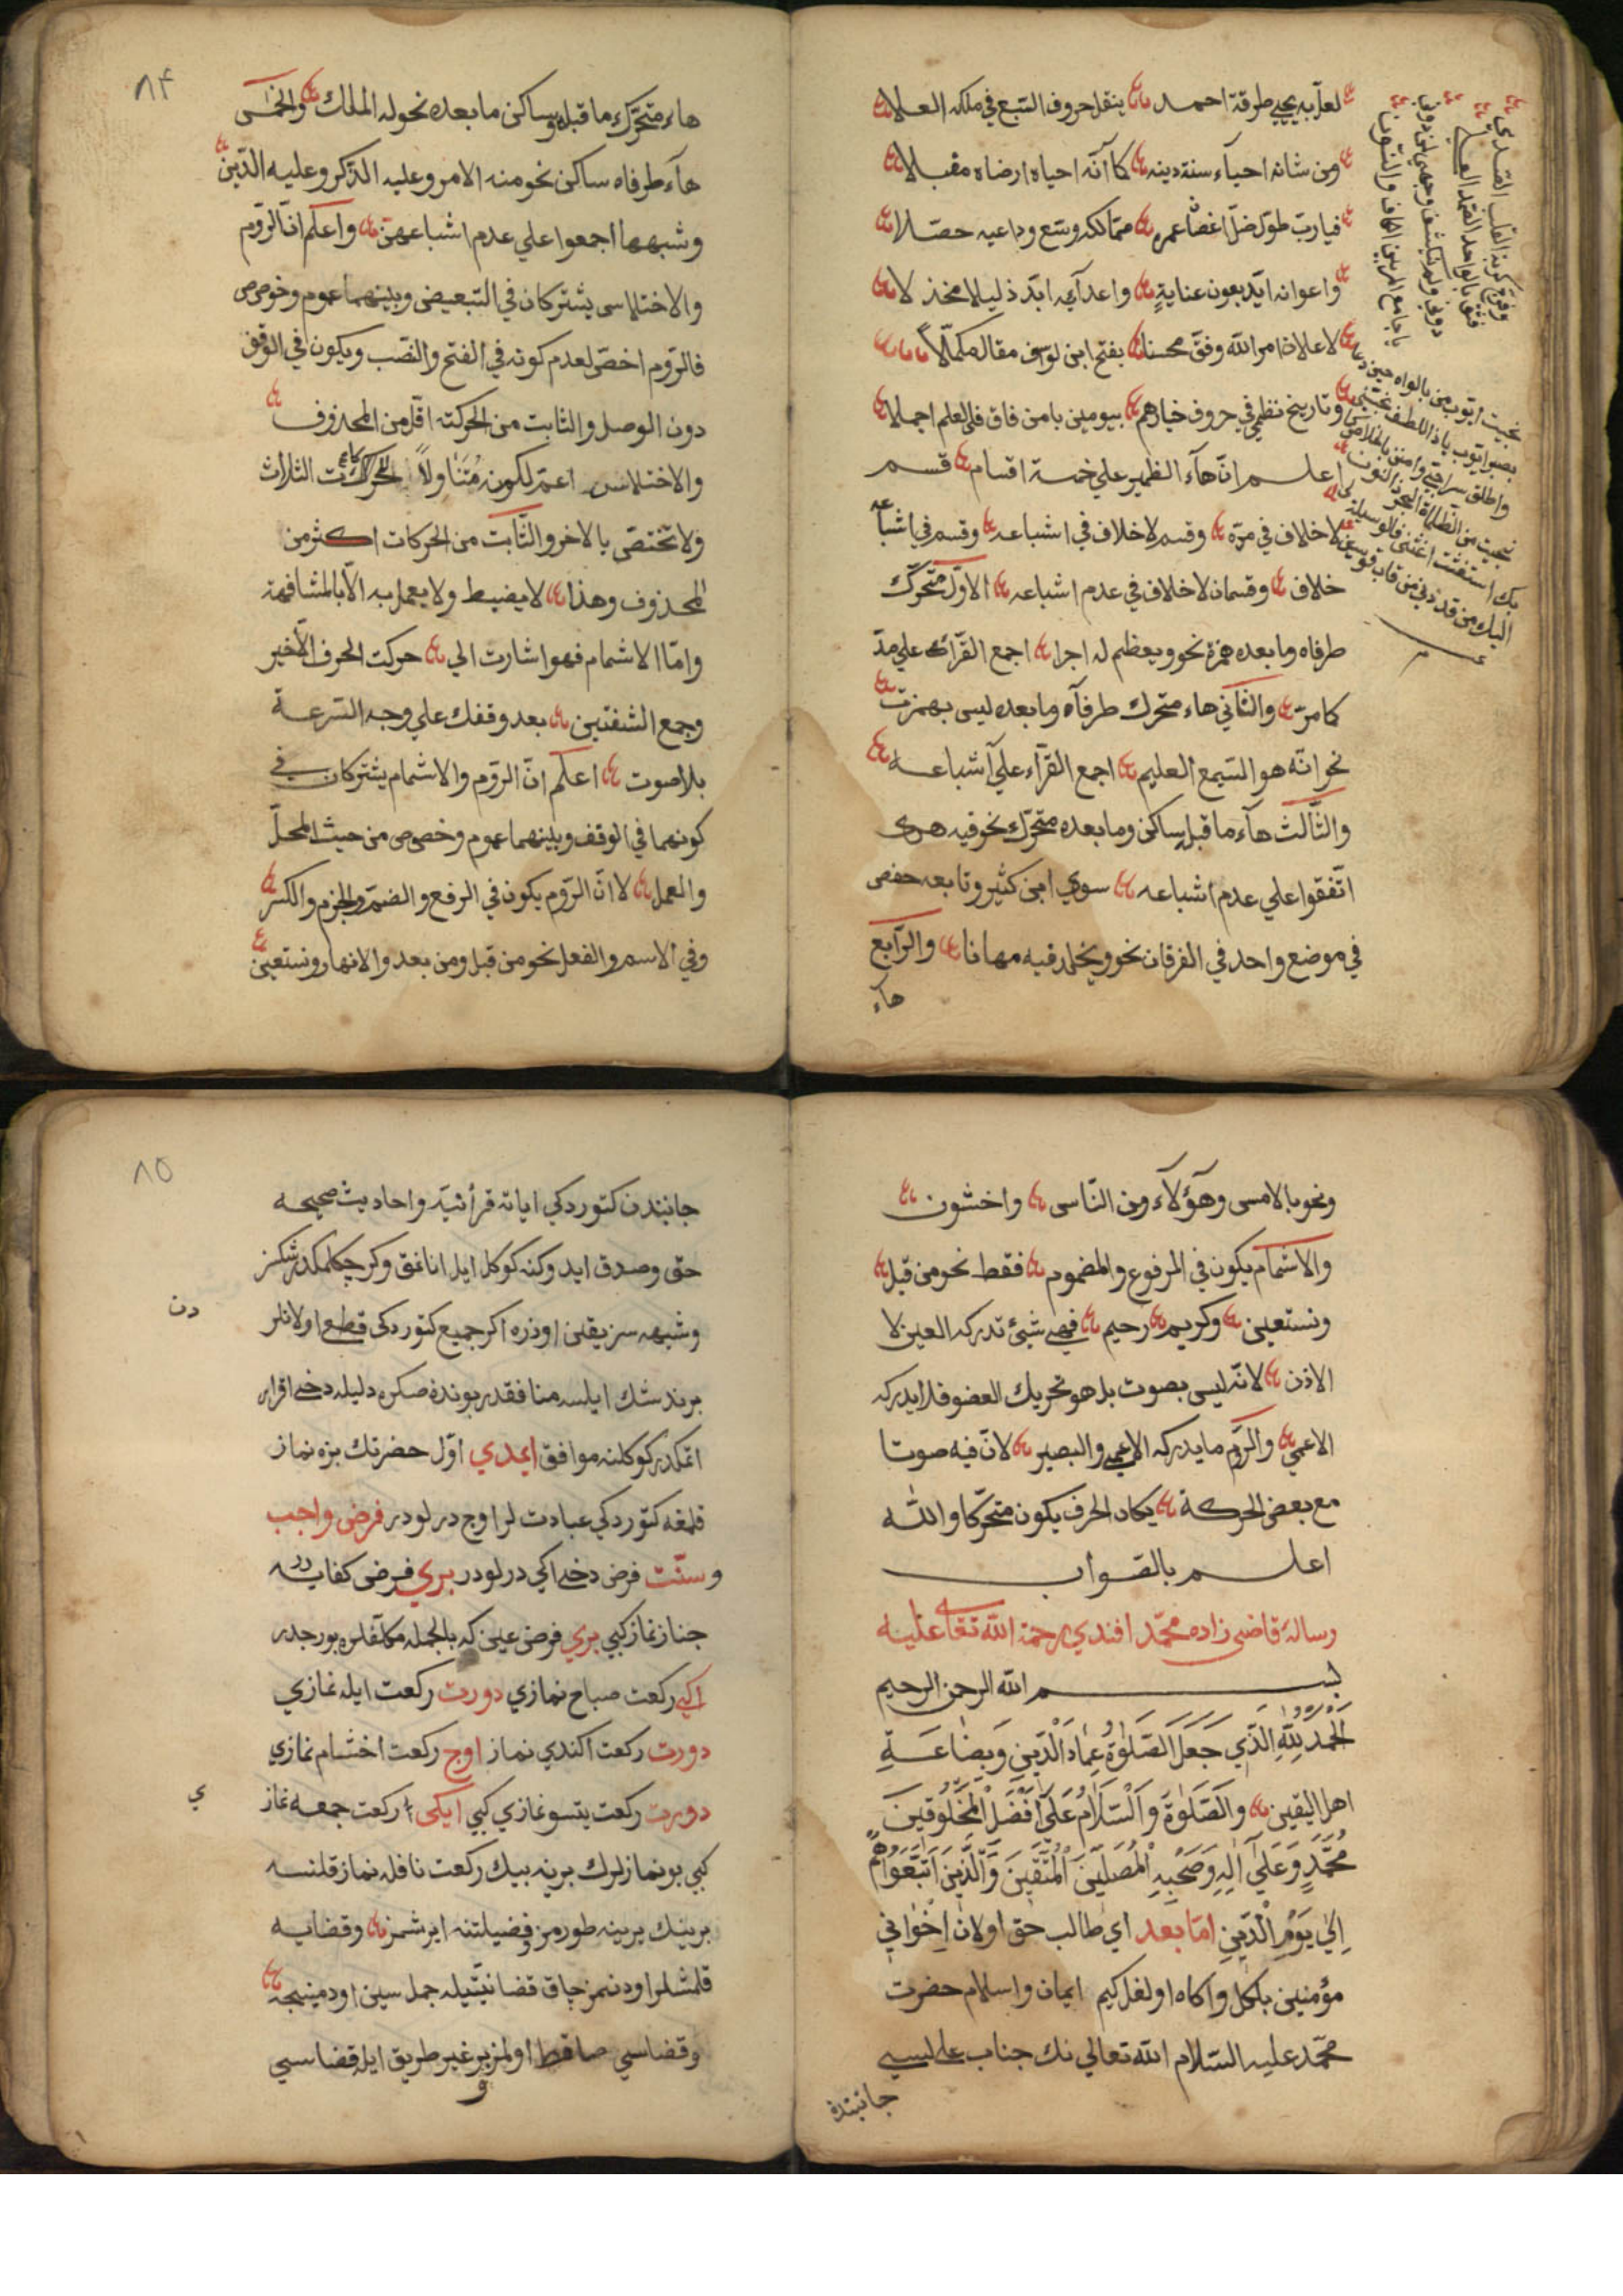 لعلّ به يحيي طرقة احمد ينقل حروف السّبع في ملكه العلا
ومن شانه احيآء سنة دينه كاانّه احياه ارضاه مقبلا
فيارب طوّل ضلّ اغصٰا عمره متمالكه وسّع وداعيه حصّلا
واعوانه ايّد بعون عناية واعدآيه ابّد ذليلا مخذلا
لاعلان امر اللّه وفق محسنا بفتح ابن لوسف مقاله مكمّلاً
وتاريخ نظمي في حروف خيارهم بيومين بامن فاق في العلم اجملا
اعلم انّ هآء الظمير علي خمسة اقسام قسم
لاخلاف في مرّه وقسم لاخلاف في اشباعه وقسم في اشباعه
خلاف وقسمان لاخلاف في عدم اشباعه الاوّل متحرّك
طرفاه وما بعده همزة نحو ويعظم له اجرا اجمع القرّآء علي مدّ
كما مرّ والثّاني هاء متحرك طرفآه وما بعده ليس بهمزت
نحو انّه هو السّيمع العليم اجمع القرّآء علي آشباعه
والثّالث هآء ما قبله ساكن وما بعده متحرّك نحو فيه هدى
اتّفقوا علي عدم اشباعه سوي ابن كثير وتابعه حفص
في موضع واحد في الفرقان نحو ويخلد فيه مهانا والرّابع
هآء
وفرّج كربة القلب الصّدي
فثق بالواحد الصّمد العلي
يا جامع المربين الكاف والنّون
٨٤
هاء متحرّك ما قبله وساكن ما بعده نحو له الملك والخمسى
هآء طرفاه ساكن نحو منه الامر وعليه الذّكر وعليه الدّين
وشبهها اجمعوا علي عدم اشباعهنّ واعلم انّ الرّوم
والاختلاس يشتركان في التبعيض وبينهما عموم وخوصوص
فالرّوم اخصّ لعدم كونه في الفتح والنصب ويكون في الوقف
دون الوصل والثابت من الحركته اقلّ من المحذوف
والاختلاس اعمّ لكونه مُتَنٰاولاً للحركات الثلاث
ولا تختصّ بالاخر والثّابت من الحركات اكثر من
المحذوف وهذا لا يضبط ولا يعمل به الّا بالمشافهة
وامّا الاشمام فهوا شارت الي حركت الحرف الآخير
وجمع الشفتين بعد وقفك علي وجه السّرعة
بلا صوت اعلم انّ الرّوم والاشمام يشتركان في
كونهما في الوقف وبينهما عموم وخصوص من حيث المحلّ
والعمل لا انّ الرّوم يكون في الرفع والضمّ والجزم والكسر
وفي الاسم والفعل نحو من قبل ومن بعد والانهار ونستعين
ونحو بالامس وهؤلآء ومن النّاس واخشون
والاشمام يكون في المرفوع والمضموم فقط نحو من قبل
ونستعين وكريم رحيم فهي شيئ تدركه العين لا
الاذن لانّه ليس بصوت بل هو تحريك العضو فلا يدركه
الاعمي والرّوم ما يدركه الاعمي والبصير لانّ فيه صوتا
مع بعض الحركة يكاد الحرف يكون متحرّكا واللّه
اعلم بالصّواب
رسالهٔ قاضي زاده محمّد افندي رحمة اللّه تعٰا عليه
بسم اللّه الرحمن الرحيم
الْحَمْدُ لِلّٰهِ الَّذِي جَعَلَ الصَّلٰوةَ عِمَادَ الدّينِ وَبِضَاعَةِ
اهل اليقين وَالصَّلٰوةُ وَالسَّلَامُ عَلَي اَفْضَلِ الْمَخْلُوقينَ
مُحَمَّدٍ وَعَلَي آلِهِ وَصَحْبِهِ الْمُصَلّينَ الْمُتَّقينَ وَالَّذينَ اتَّبَعُوا هُمْ
اِلَي يَوْمِ الدّينِ امّا بعد اي طالب حق اولان اِخْوَانِي
مؤمنين بلكل واكاه اولغل كيم ايمان واسلام حضرت
محمّد عليه السّلام اللّه تعالي نك جناب عاليسي
جانبندن
٨٥
جانبندن كتوردكي اياته قرأنيّه واحاديث صحيحه
حق وصدق ايدوكنه كوكل ايله انانمق وكرچكلمكدر شكسز
وشبهه سز يقين اوزره اكر جميع كتوردكي قطع اولانلر
دن
برنده شك ايلسه منافقدر بونده صكره دليله دخي اقرار
اتمكدر كوكلنه موافق ايمدي اوّل حضرتك بزه نماز
قلمغه كتوردكي عبادت لر اوج درلودر فرض واجب
وسنّت فرض دخي اكي درلودر بري فرض كفايه در
جناز نماز كبي بري فرض عين كه بالجمله مكلّفلره بورجدر
اكي ركعت صباح نمازي دورت ركعت ايله نمازي
دورت ركعت اكندي نماز اوج ركعت اخشام نمازي
دورت ركعت يتسو نمازي كبي ايكى ركعت جمعه نماز
ي
كبي بو نمازلرك برينه بيك ركعت نافله نماز قلنسه
برينك يرينه طورمز وفضيلتنه ايرشمز وقضايه
قلمشلر اودنمز چاق قضا نيّتيله جمله سين اودمينجه
وقضاسي صاقط اولمز بر غير طريق ايله قضاسي
و